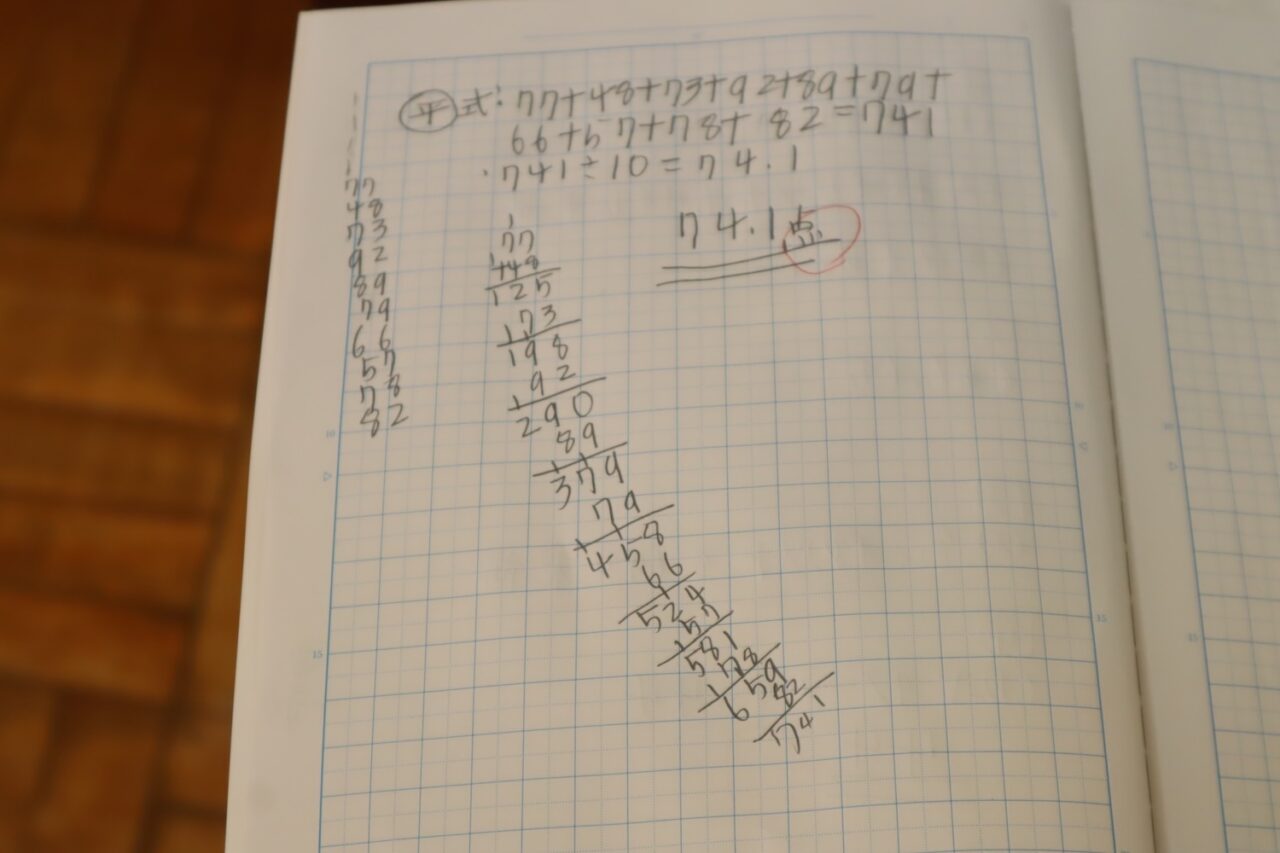 平 式:77+48+73+92+89+79+
66+57+78+ 82=741
741÷10=74.1
74.1点
77
48
73
92
89
79
66
57
78
82
1
77
+48
125
73
198
92
290
89
379
79
458
66
524
57
581
78
659
82
741